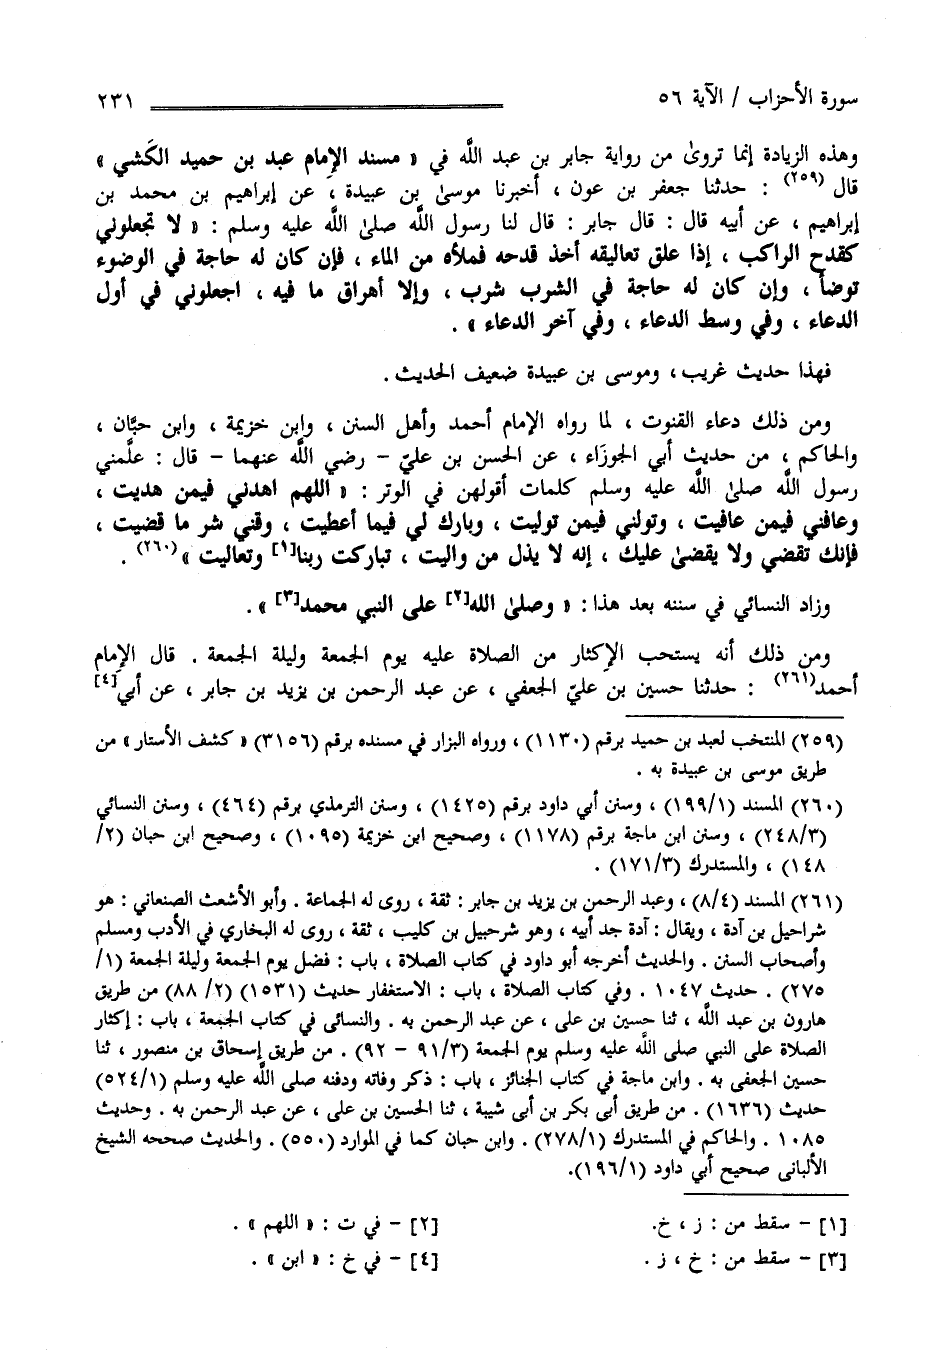 سورة الأحزاب / الآية ٥٦ ٢٣١
وهذه الزيادة إنما تروىٰ من رواية جابر بن عبد اللَّه في « مسند الإمام عبد بن حميد الكَشي »
قال (٢٥٩) : حدثنا جعفر بن عون ، أخبرنا موسىٰ بن عبيدة ، عن إبراهيم بن محمد بن
إبراهيم ، عن أبيه قال : قال جابر : قال لنا رسول اللَّه صلىٰ اللَّه عليه وسلم : « لا تجعلوني
كقدح الراكب ، إذا علق تعاليقه أخذ قدحه فملأه من الماء ، فإن كان له حاجة في الوضوء
توضأ ، وإن كان له حاجة في الشرب شرب ، وإلا أهراق ما فيه ، اجعلوني في أول
الدعاء ، وفي وسط الدعاء ، وفي آخر الدعاء » .
فهذا حديث غريب ، وموسى بن عبيدة ضعيف الحديث .
ومن ذلك دعاء القنوت ، لما رواه الإمام أحمد وأهل السنن ، وابن خزيمة ، وابن حبَّان ،
والحاكم ، من حديث أبي الجوزَاء ، عن الحسن بن عليّ - رضي اللَّه عنهما - قال : علَّمني
رسول اللَّه صلىٰ اللَّه عليه وسلم كلمات أقولهن في الوتر : « اللهم اهدني فيمن هديت ،
وعافني فيمن عافيت ، وتولني فيمن توليت ، وبارك لي فيما أعطيت ، وقني شر ما قضيت ،
فإنك تقضي ولا يقضىٰ عليك ، إنه لا يذل من واليت ، تباركت ربنا[١] وتعاليت »(٢٦٠) .
وزاد النسائي في سننه بعد هذا : « وصلىٰ الله[٢] على النبي محمد[٣] » .
ومن ذلك أنه يستحب الإكثار من الصلاة عليه يوم الجمعة وليلة الجمعة . قال الإمام
أحمد(٢٦١) : حدثنا حسين بن عليّ الجعفي ، عن عبد الرحمن بن يزيد بن جابر ، عن أبي[٤]
(٢٥٩) المنتخب لعبد بن حميد برقم (١١٣٠) ، ورواه البزار في مسنده برقم (٣١٥٦) « كشف الأستار » من
طريق موسى بن عبيدة به .
(٢٦٠) المسند (١/١٩٩) ، وسنن أبي داود برقم (١٤٢٥) ، وسنن الترمذي برقم (٤٦٤) ، وسنن النسائي
(٣/٢٤٨) ، وسنن ابن ماجة برقم (١١٧٨) ، وصحيح ابن خزيمة (١٠٩٥) ، وصحيح ابن حبان (٢/
١٤٨) ، والمستدرك (٣/١٧١) .
(٢٦١) المسند (٤/٨) ، وعبد الرحمن بن يزيد بن جابر : ثقة ، روى له الجماعة . وأبو الأشعث الصنعاني : هو
شراحيل بن آدة ، ويقال : آدة جد أبيه ، وهو شرحبيل بن كليب ، ثقة ، روى له البخاري في الأدب ومسلم
وأصحاب السنن . والحديث أخرجه أبو داود في كتاب الصلاة ، باب : فضل يوم الجمعة وليلة الجمعة (١/
٢٧٥) . حديث ١٠٤٧ . وفي كتاب الصلاة ، باب : الاستغفار حديث (١٥٣١) (٢/ ٨٨) من طريق
هارون بن عبد اللَّه ، ثنا حسين بن على ، عن عبد الرحمن به . والنسائى في كتاب الجمعة ، باب : إكثار
الصلاة على النبي صلى اللَّه عليه وسلم يوم الجمعة (٣/٩١ - ٩٢) . من طريق إسحاق بن منصور ، ثنا
حسين الجعفى به . وابن ماجة في كتاب الجنائز ، باب : ذكر وفاته ودفنه صلى اللَّه عليه وسلم (١/٥٢٤)
حديث (١٦٣٦) . من طريق أبى بكر بن أبى شيبة ، ثنا الحسين بن على ، عن عبد الرحمن به . وحديث
١٠٨٥ . والحاكم في المستدرك (١/٢٧٨) . وابن حبان كما في الموارد (٥٥٠) . والحديث صححه الشيخ
الألبانى صحيح أبي داود (١/١٩٦).
[١] - سقط من : ز ، خ. [٢] - في ت : « اللهم » .
[٣] - سقط من : خ ، ز . [٤] - في خ : « ابن » .